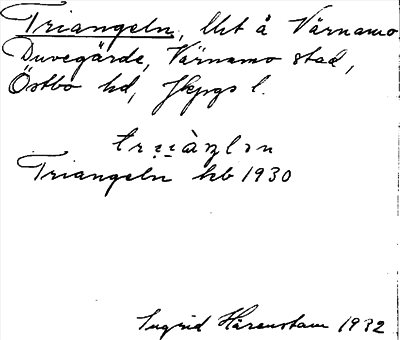 Triangeln, lht å Värnamo
Duvegärde, Värnamo stad,
Östbo hd, Jkpgs l.
Triangeln kb 1930
Ingrid Härenstam 1932